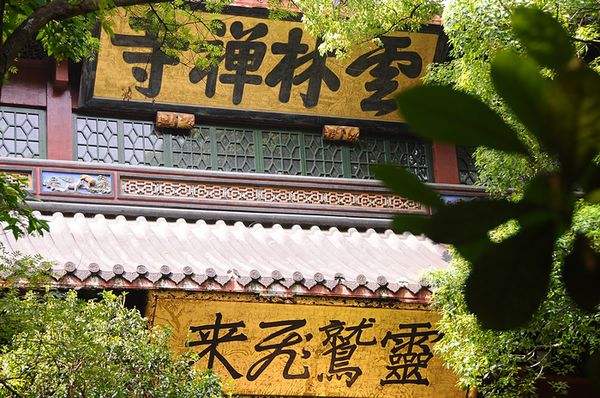 雲林禅寺
靈鷲飛来